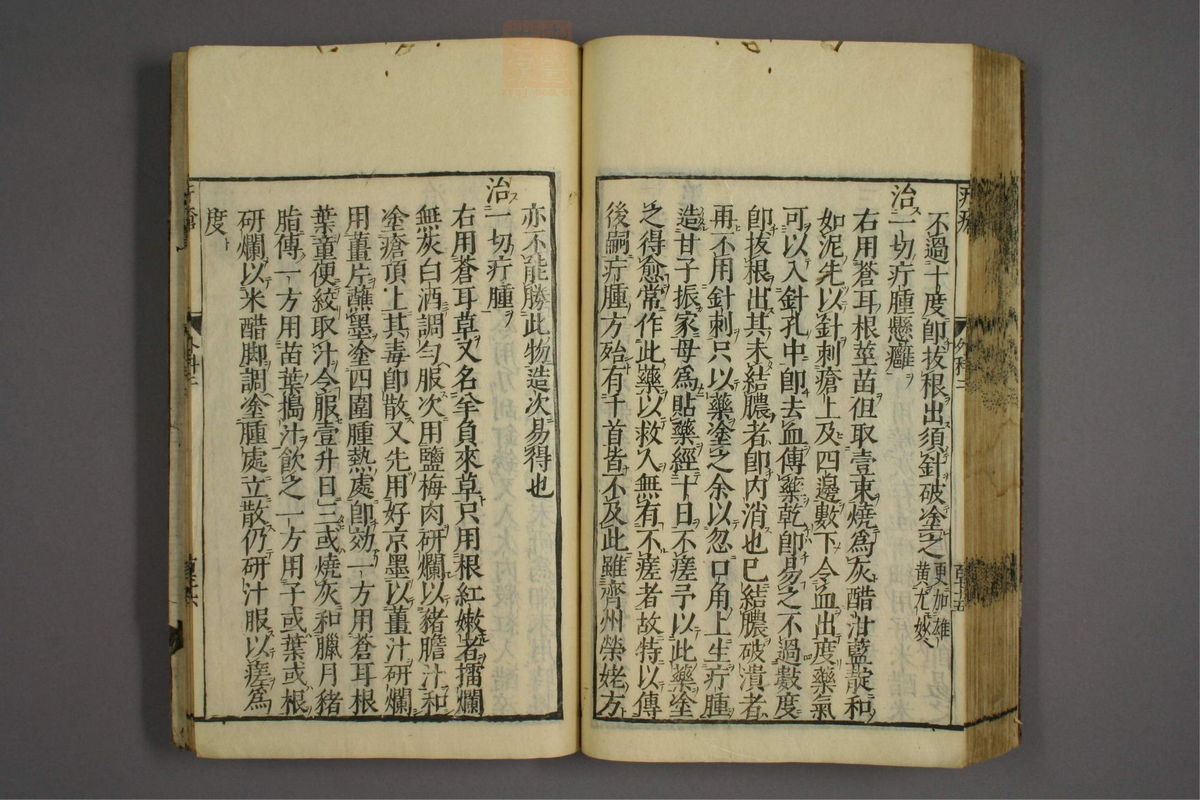 不過十度即拔根出須針破塗之更加雄黃尤妙
治一切疔腫懸癰
右用蒼耳根莖苗但取壹束燒為灰醋泔藍靛和
如泥先以針刺瘡上及四邊數下令血出度藥氣
可以入針孔中即去血傅藥乾即易之不過數度
即拔根出其未結膿者即內消也已結膿破潰者
再不用針刺只以藥塗之余以忽口角上生疔腫
造甘子振家母為貼藥經十日不瘥予以此藥塗
之得愈常作此藥以救人無有不瘥者故特以傳
後嗣疔腫方殆有千首皆不及此雖齊州榮姥方
亦不能勝此物造次易得也
治一切疔腫
右用蒼耳草又名羊負來草只用根紅嫩者擂爛
無灰白酒調勻服次用鹽梅肉研爛以豬膽汁和
塗瘡頂上其毒即散又先用好京墨以薑汁研爛
用薑片蘸墨塗四圍腫熱處即效一方用蒼耳根
葉童便絞取汁令服壹升日三或燒灰和臘月豬
脂傅一方用苗葉搗汁飲之一方用子或葉或根
研爛以米醋脚調塗腫處立散仍研汁服以瘥為
度